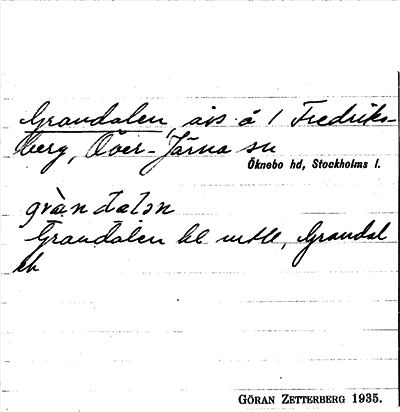 Grandalen, avs å 1 Fredriks-
berg, Över-Järna sn
Öknebo hd, Stockholms l.
gràndalən
Grandalen
Grandal
GÖRAN ZETTERBERG 1935.